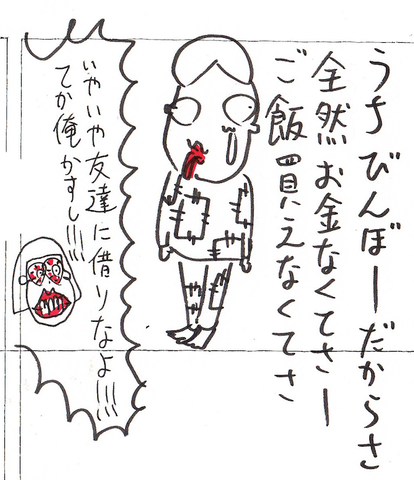 うちびんぼーだからさ
全然お金なくてさー
ご飯買えなくてさ
いやいや友達に借りなよ!!!
てか俺かすし!!!